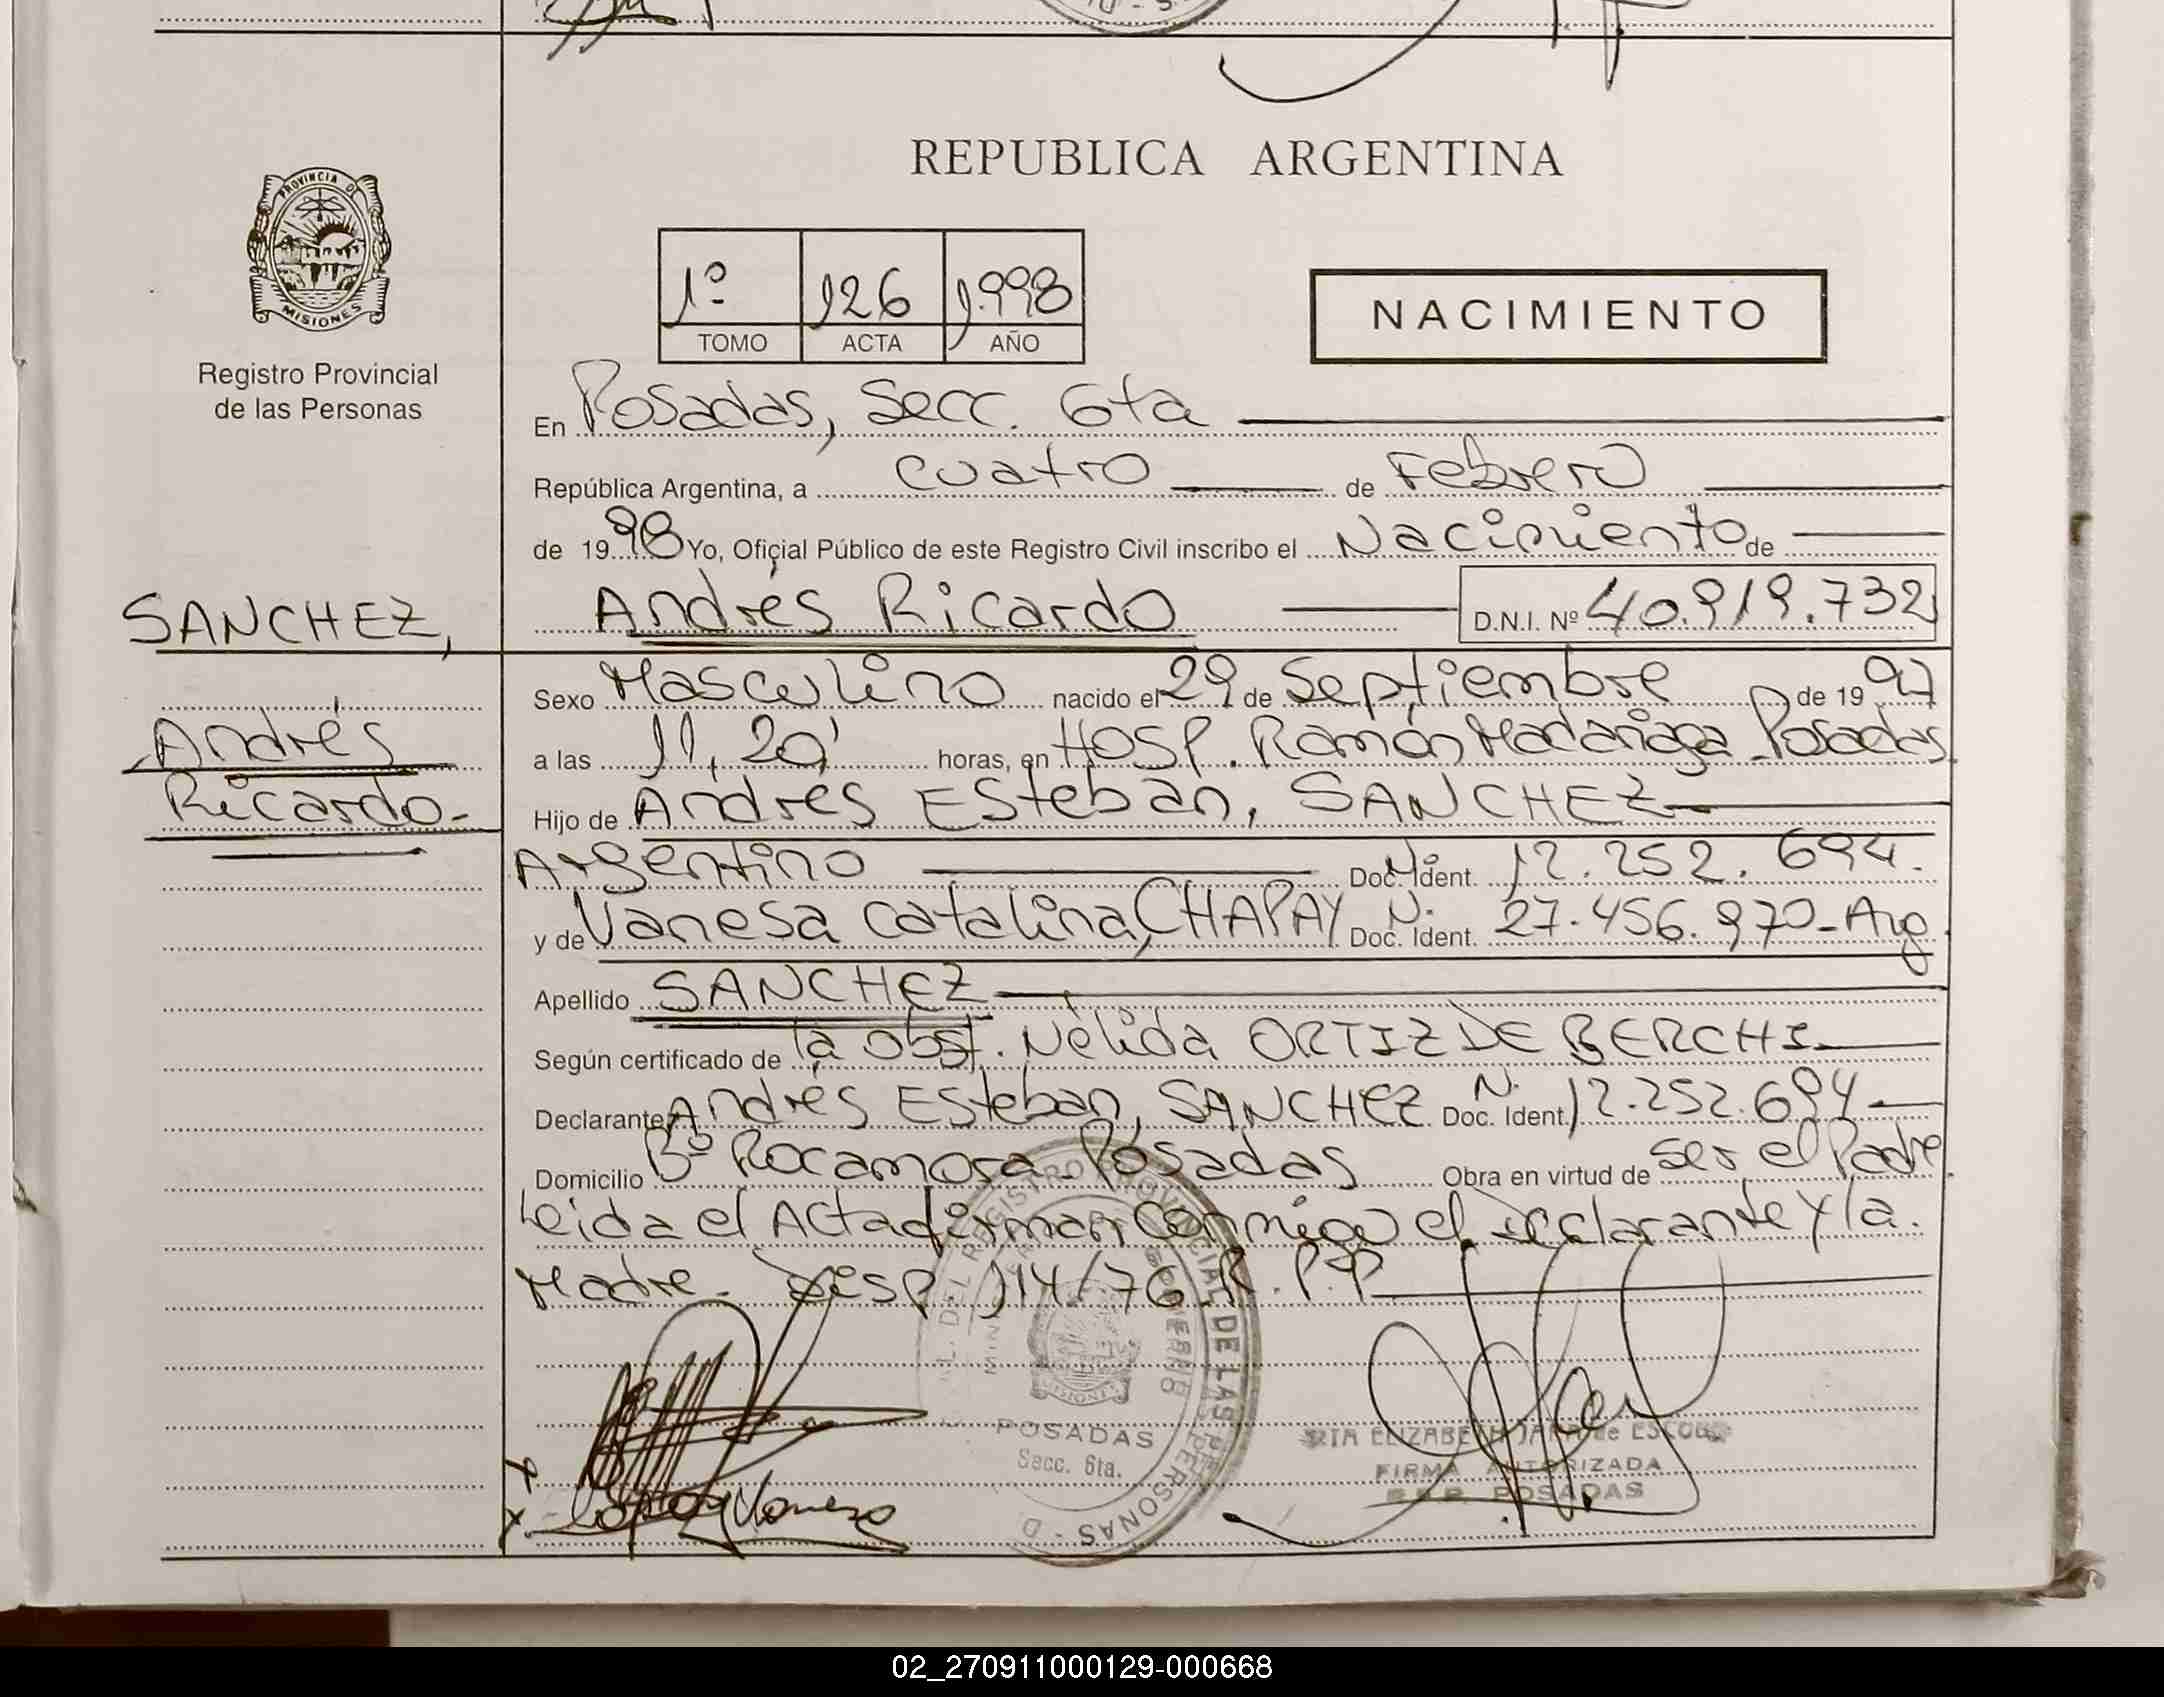 REPUBLICA ARGENTINA
PROVINCIA DE
MISIONES
Registro Provincial
de las Personas
1º 126 1.998
TOMO ACTA AÑO
NACIMIENTO
En Posadas, Secc. 6ta
República Argentina, a cuatro de Febrero
de 1998 Yo, Oficial Público de este Registro Civil inscribo el Nacimiento de
SANCHEZ,
Andrés
Ricardo.-
Andrés Ricardo D.N.I. Nº 40.919.732
Sexo Masculino nacido el 29 de Septiembre de 1997
a las 11,20' horas, en Hosp. Ramón Madariaga - Posadas
Hijo de Andrés Esteban, SANCHEZ
Argentino Doc. Ident. N. 12.252.694.
y de Vanesa Catalina, CHAPAY Doc. Ident. N. 27.456.970 - Arg.
Apellido SANCHEZ
Según certificado de la obst. Nélida ORTIZ DE BERCHI
Declarante Andrés Esteban, SANCHEZ Doc. Ident. N. 12.252.694
Domicilio Bº Rocamora Posadas Obra en virtud de ser el Padre.
Leida el Acta firman conmigo el Declarante y la
Madre. Disp 114/76 R.P.P
DEL REGISTRO PROVINCIAL DE LAS PERSONAS
POSADAS
Secc. 6ta.
ELIZABETH JARA de ESCOBAR
FIRMA AUTORIZADA
POSADAS
x
x Vanesa
02_270911000129-000668